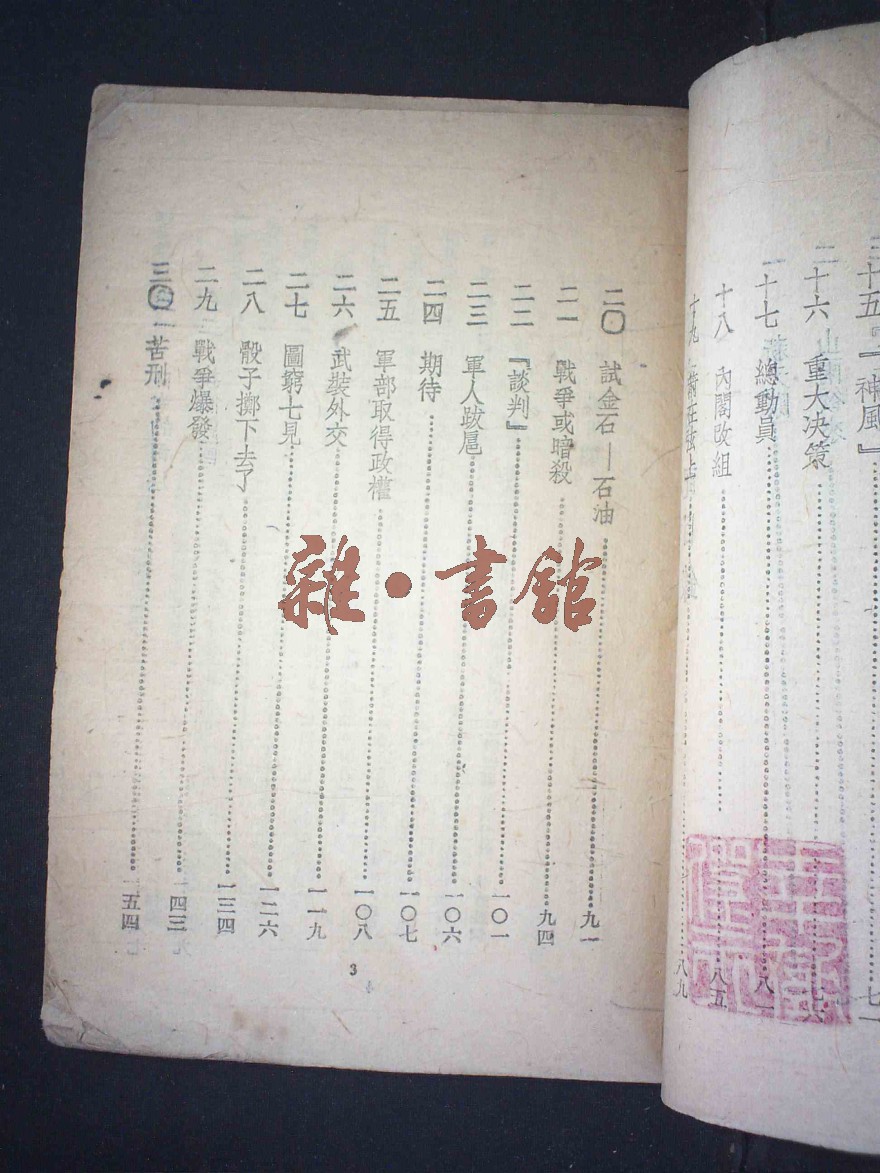 十五『神風』……七一
十六 重大决策……七六
十七 總動員……八一
十八 內閣改組……八五
十九 箭在弦上……八九
二〇 試金石—石油……九一
二一 戰爭或暗殺……九四
二二 『談判』……一〇一
二三 軍人跋扈……一〇六
二四 期待……一〇七
二五 軍部取得政權……一〇八
二六 武裝外交……一一九
二七 圖窮七見……一二六
二八 骰子擲下去了……一三四
二九 戰爭爆發……一四三
三〇 苦刑……一五四
3
雜·書館